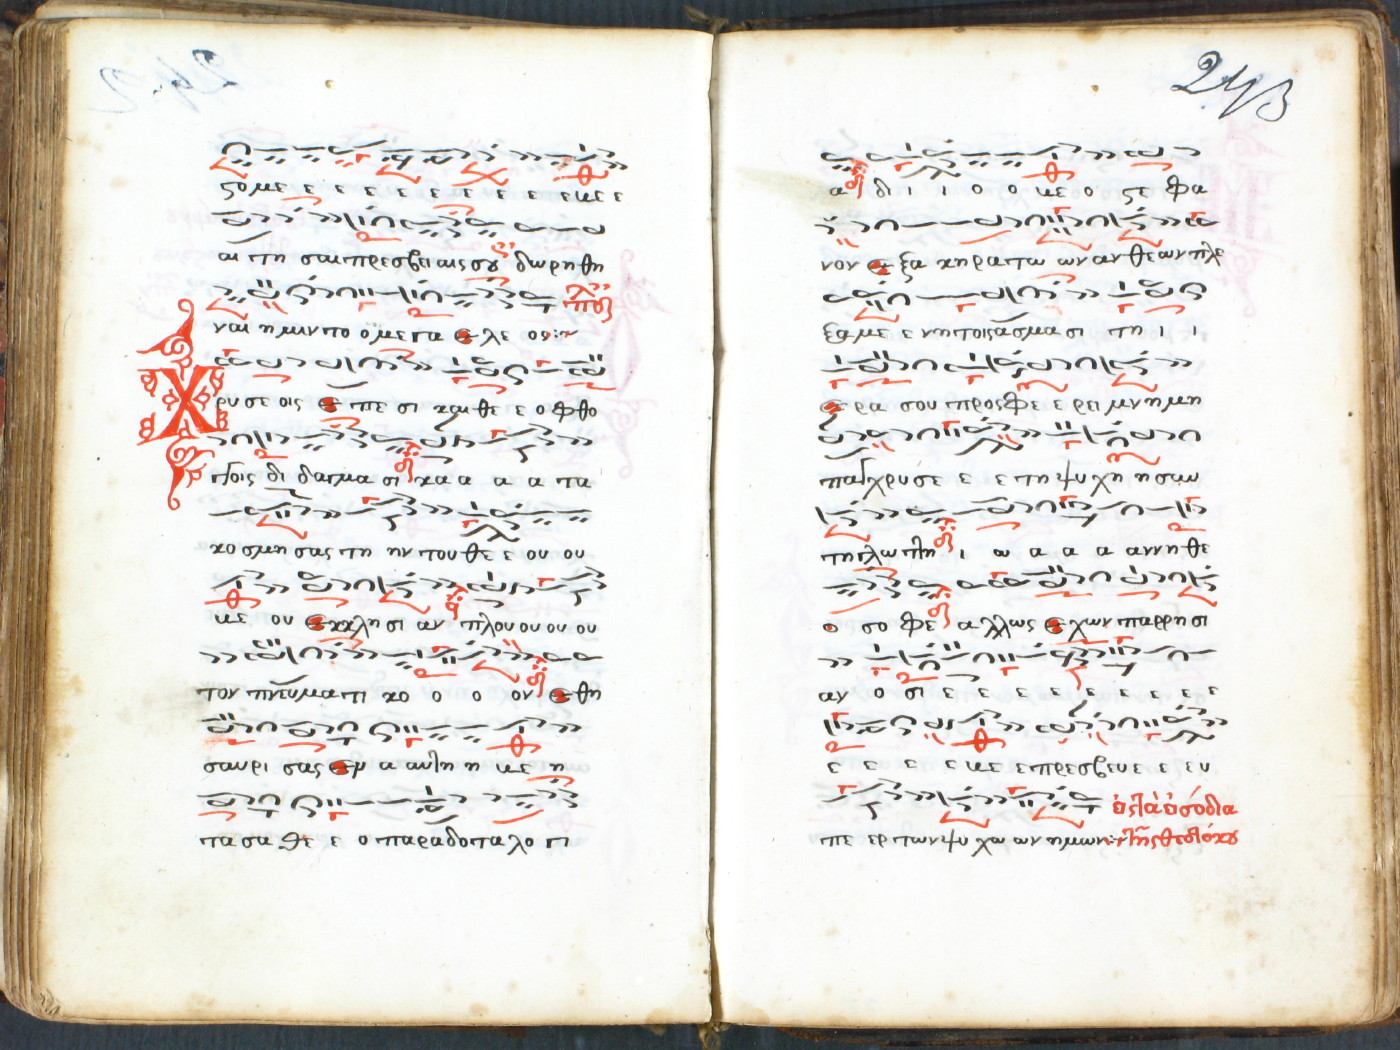 ζο με ε ε ε ε ε ε ε ε ε με ε
αι τη σαι πρεσβειαις σου δωρηθη
ναι η μιν το ο με γα ε λε ος
Χρυσε οις ε πε σι και θε ε ο φθο
γγοις δι δαγμα σι κα α α α τα
κο σμη σας τη ην του θε ε ου ου
με ου εκκλη σι αν πλου ου ου ου
τον πνευμα τι κο ο ο ον ε θη
σαυρι σας εν α αυτη η με η
τα σα θε ε ο παραδο τα λο γι
243
α δι ι ο ο με ο ξε φα
νον ε ξα κηρα τω ων ανθεων πλε
ξαμε ε νη τοις α σμα σι τη ι ι
ε ρα σου προσφε ε ρει μνημη
παγχρυσε ε ε τη ψυ χη η σαυ
τη γλωττη ι ω α α α αννη θε
ο σο φε αλλως ε χων παρρησι
αν ο σι ε ε ε ε ε ε ε ε
ε ε ε ε ε με ε πρεσβευε ε ευ
πε ερ των ψυ χω ων ημων
εις τα εισόδια
της θεοτόκου